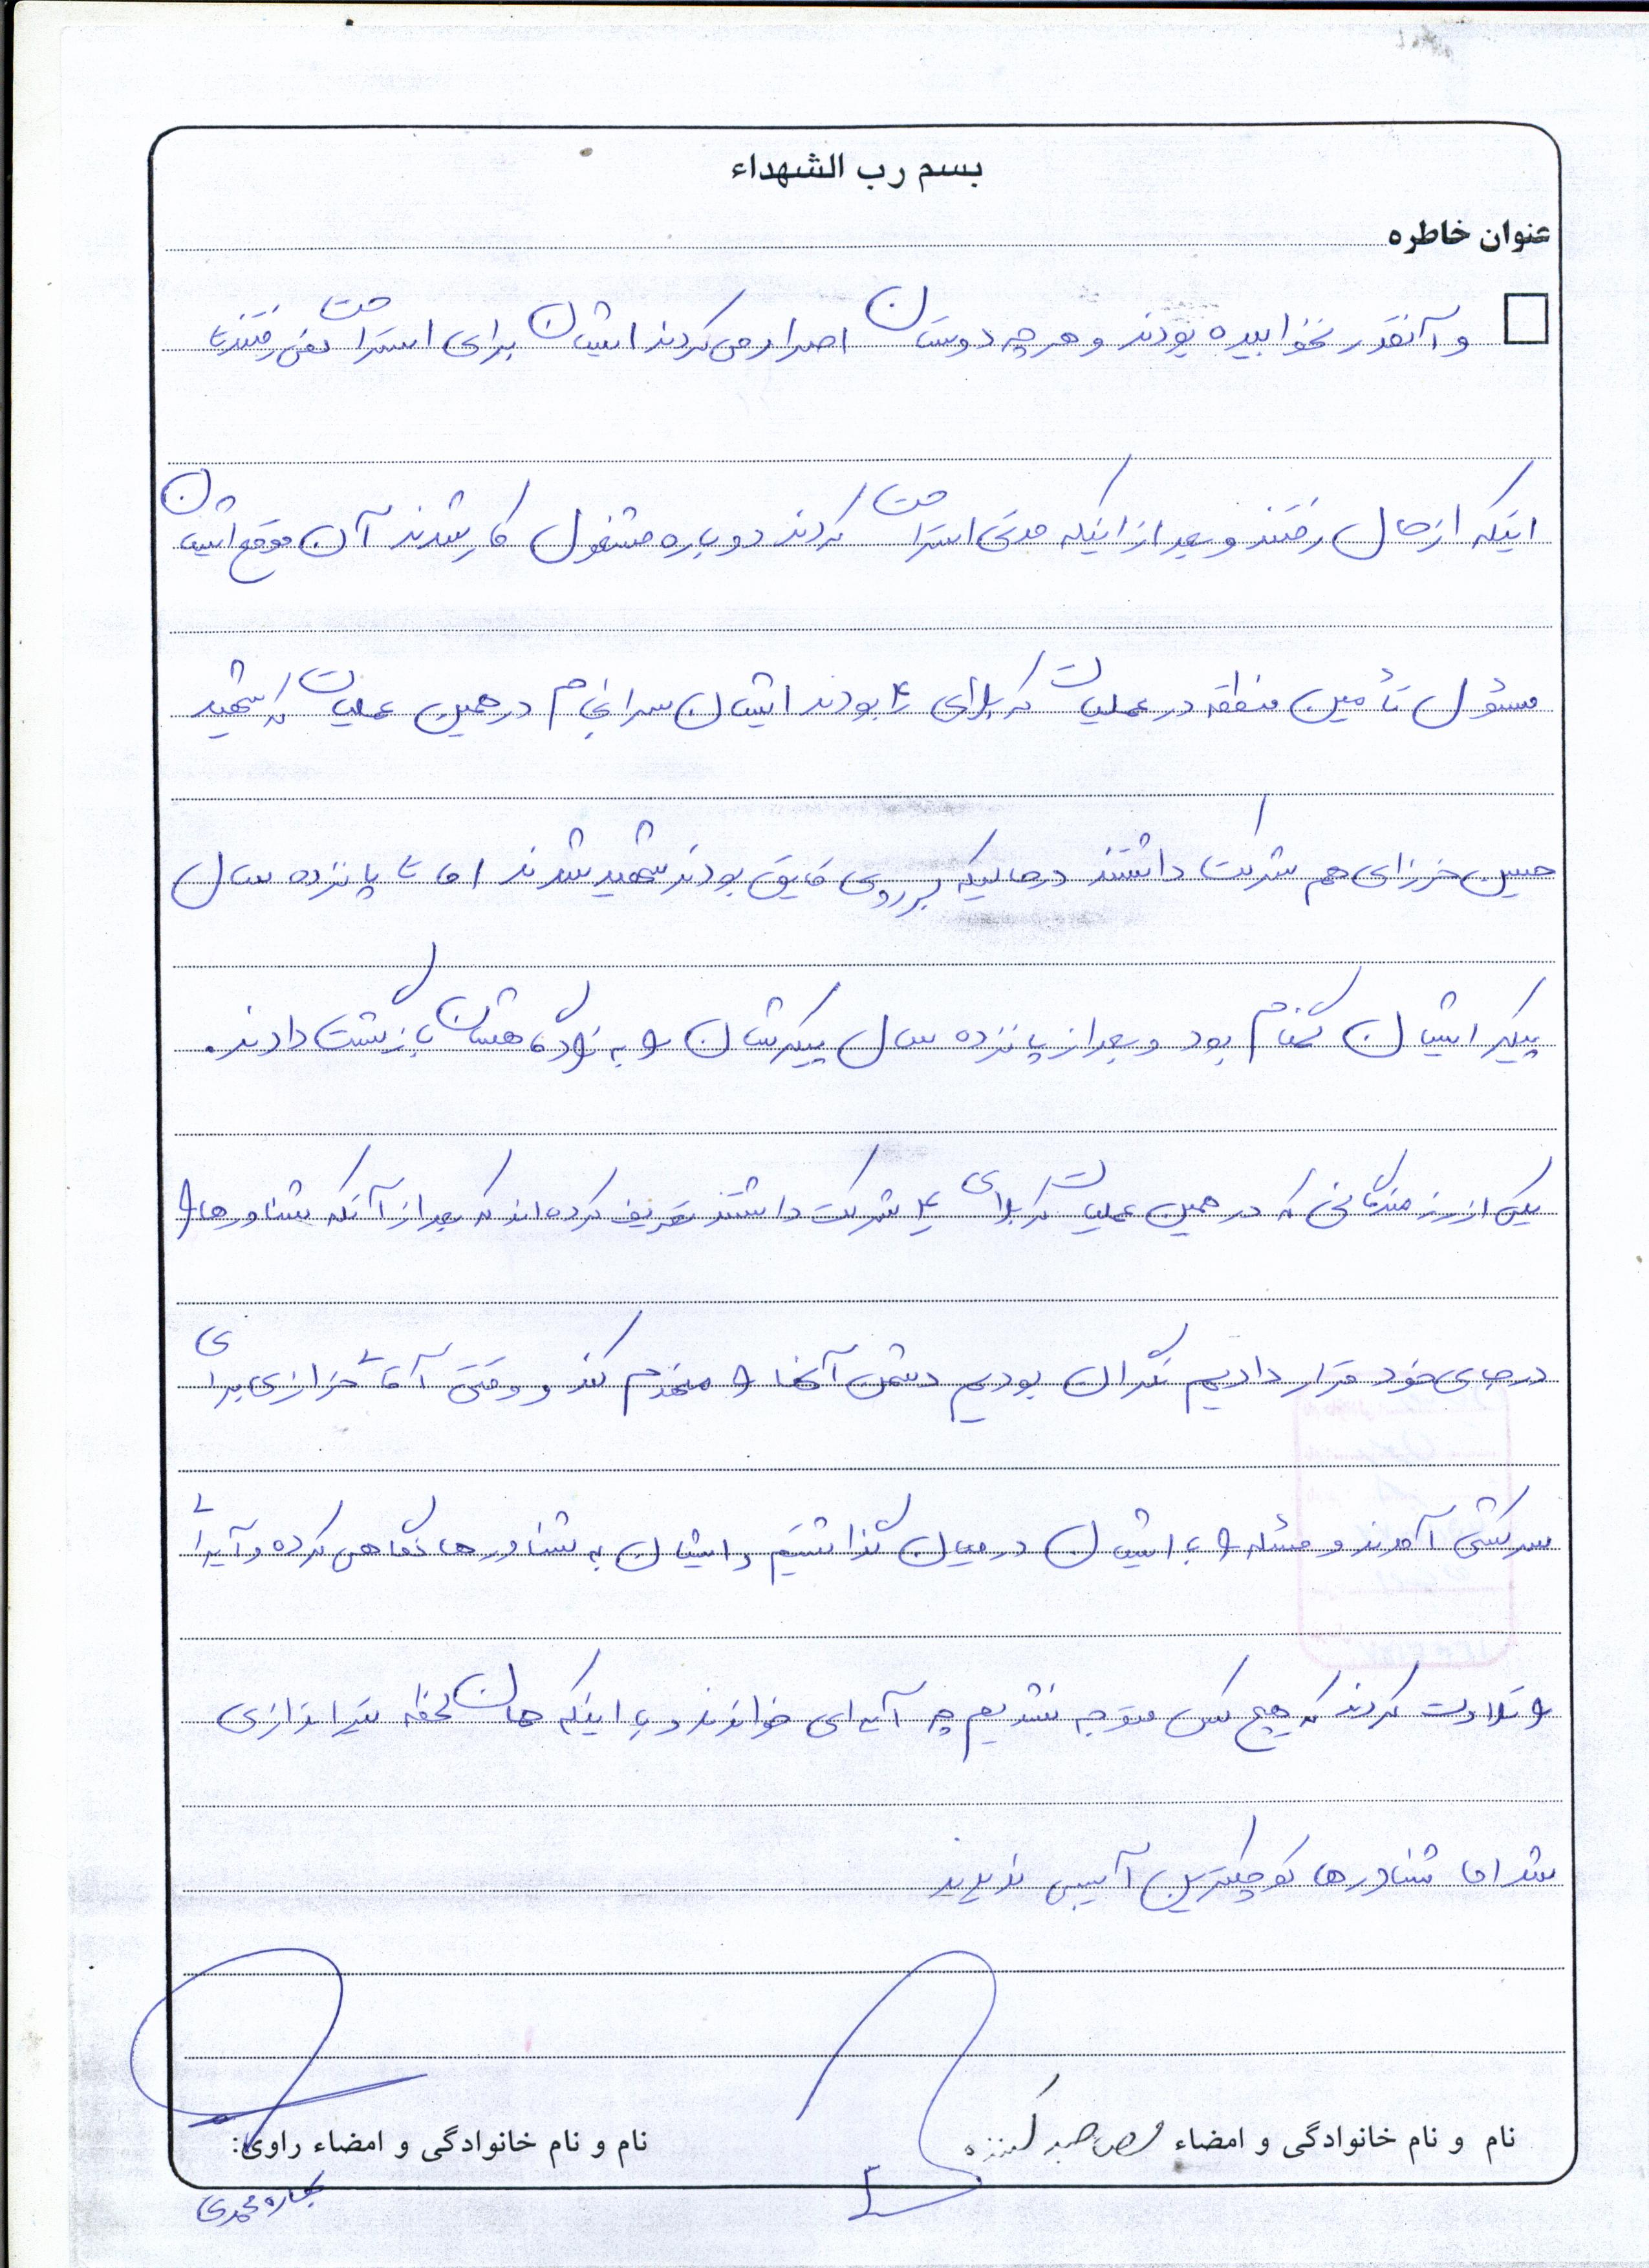 بسم رب الشهداء
عنوان خاطره
و آنقدر نخوابیده بودند و هر چه دوستان اصرار می کردند ایشان برای استراحت نمی رفتند تا
اینکه از حال رفتند و بعد از اینکه مدتی استراحت کردند دوباره مشغول کار شدند آن موقع ایشان
مسئول تأمین منطقه در عملیات کربلای ۴ بودند ایشان سرانجام در همین عملیات که شهید
حسین خرازی هم شرکت داشتند در حالیکه بر روی قایق بودند شهید شدند اما تا پانزده سال
پیکر ایشان گمنام بود و بعد از پانزده سال پیکرشان را به زادگاهشان بازگشت دادند.
یکی از رزمندگانی که در همین عملیات کربلای ۴ شرکت داشتند تعریف کرده اند که بعد از آنکه شناورها را
در جای خود قرار دادیم نگران بودیم دشمن آنها را منهدم کند و وقتی آقای خرازی برای
سرکشی آمدند و مسئله را با ایشان در میان گذاشتیم و ایشان به شناورها نگاهی کرده و آیه ای
را تلاوت کردند که هیچ کس متوجه نشدیم چه آیه ای خواندند و با اینکه همان لحظه تیراندازی
شد اما شناورها کوچکترین آسیبی ندیدند
نام و نام خانوادگی و امضاء مصاحبه کننده
نام و نام خانوادگی و امضاء راوی:
محمدی